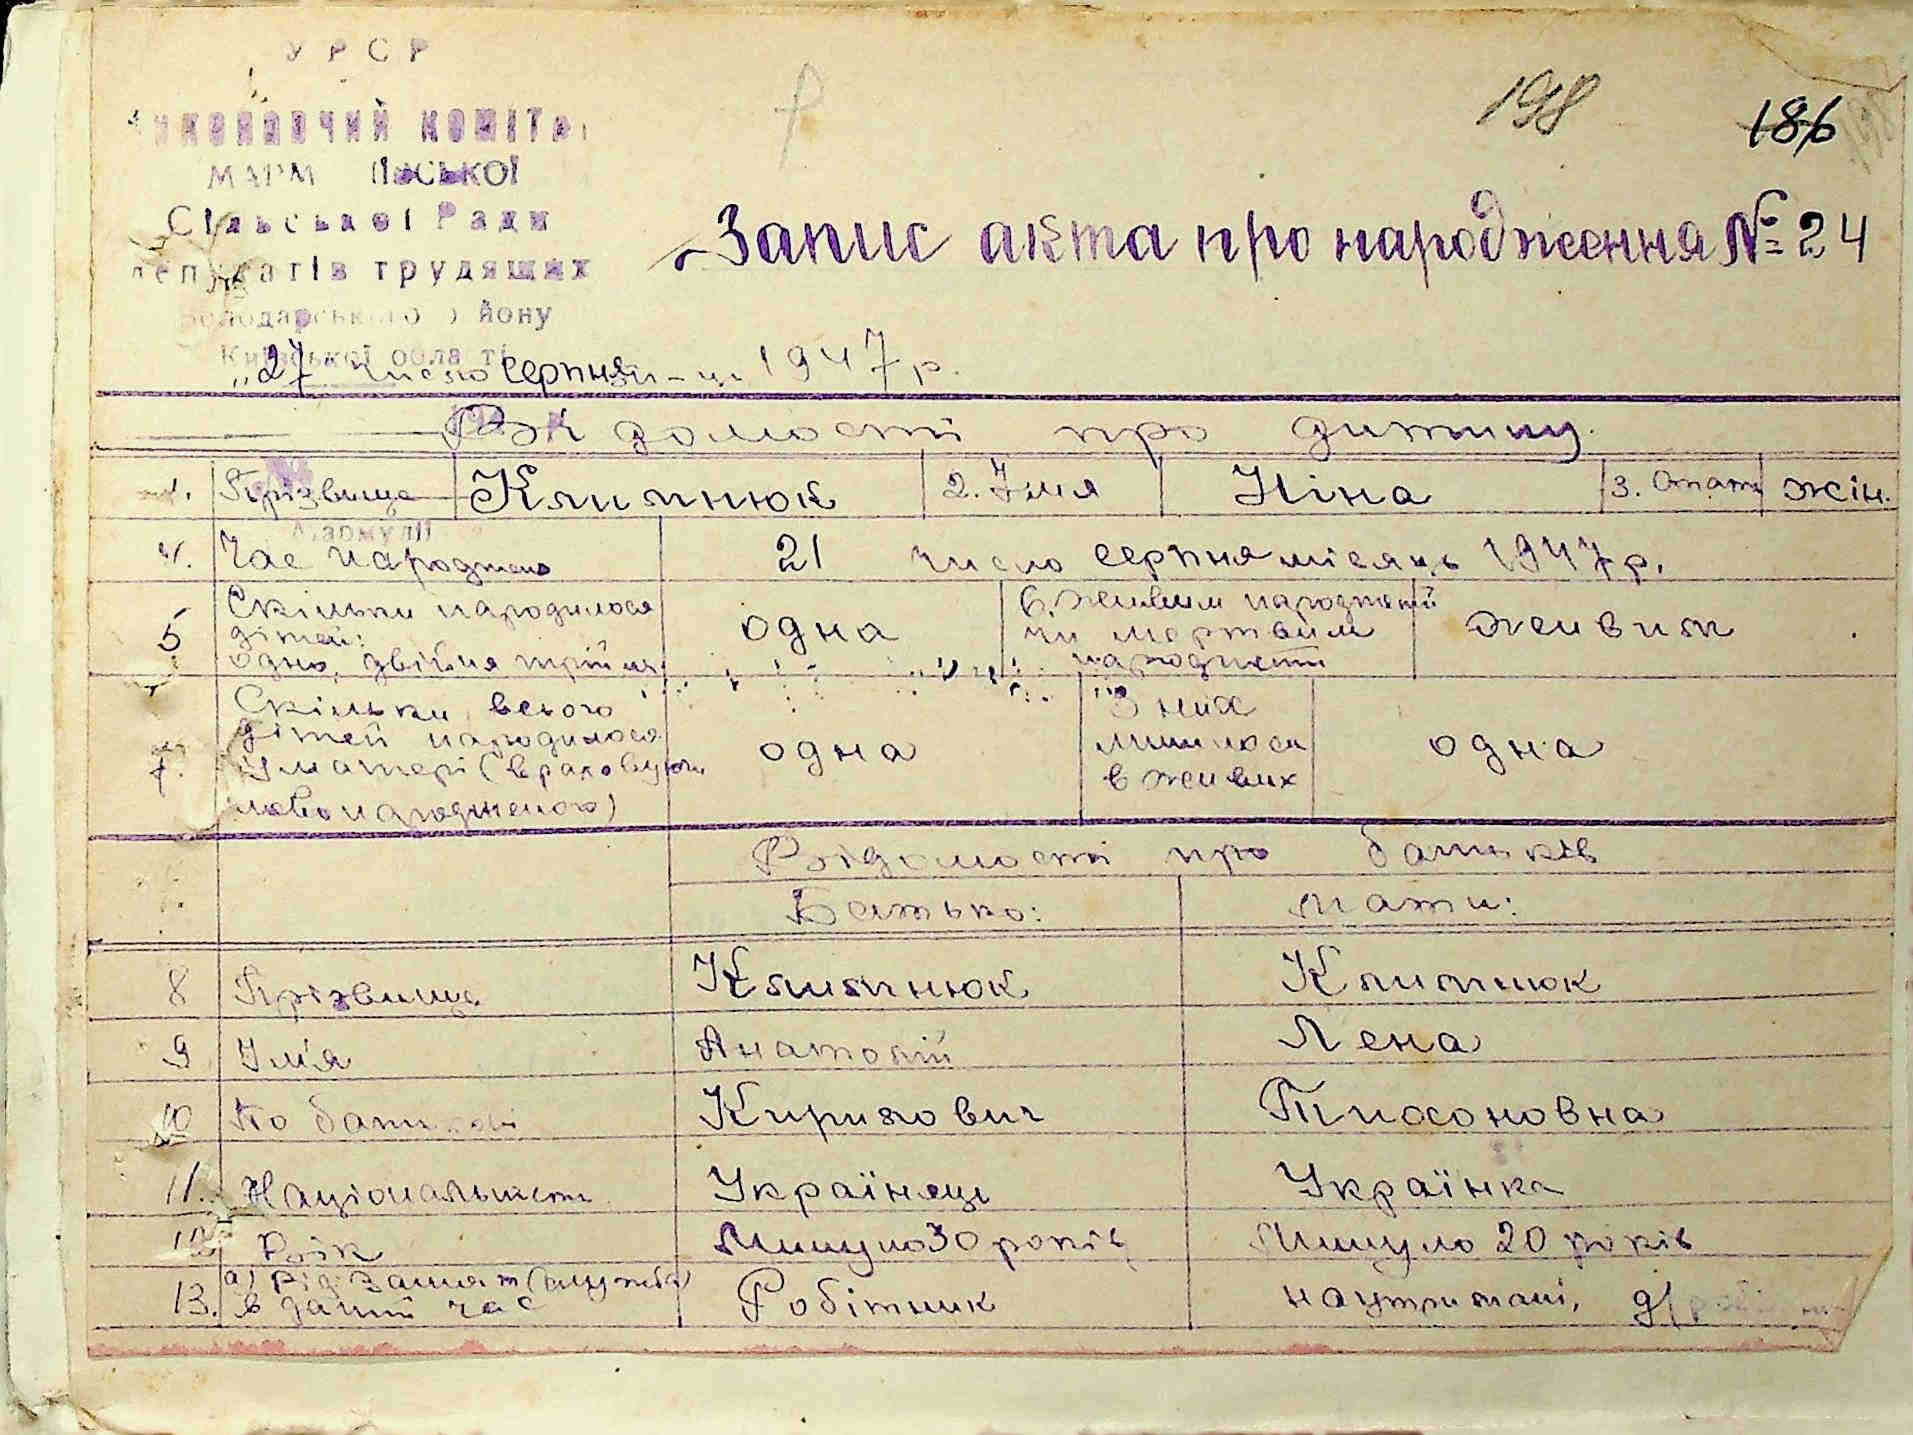 УРСР
198
186
виконавчий комітет
Сільської Ради
депутатів трудящих
Володарського району
Київської області
Запис акта про народження № 24
„27 число серпня м-ця 1947 р.
Відомості про дитину
1. Прізвище Климнюк 2. Імя Ніна 3. Стать жін.
4. Час народжен 21 число серпня місяць 1947 р.
5 Скільки народилося дітей: одно, двійня трійня одна 6. живим народжений чи мертвим живим
7. Скільки всього дітей народилося у матері (враховуючи новонародженого) одна З них лишилося в живих одна
Відомості про батьків
Батько: Мати:
8 Прізвище Климнюк Климнюк
9 Імя Анатолій Лена
10 По батькові Кирилович Тихоновна
11. Національність Українець Українка
12 Вік Минуло 30 років Минуло 20 років
13. а) Рід занят (служба) в даний час Робітник на утримані,